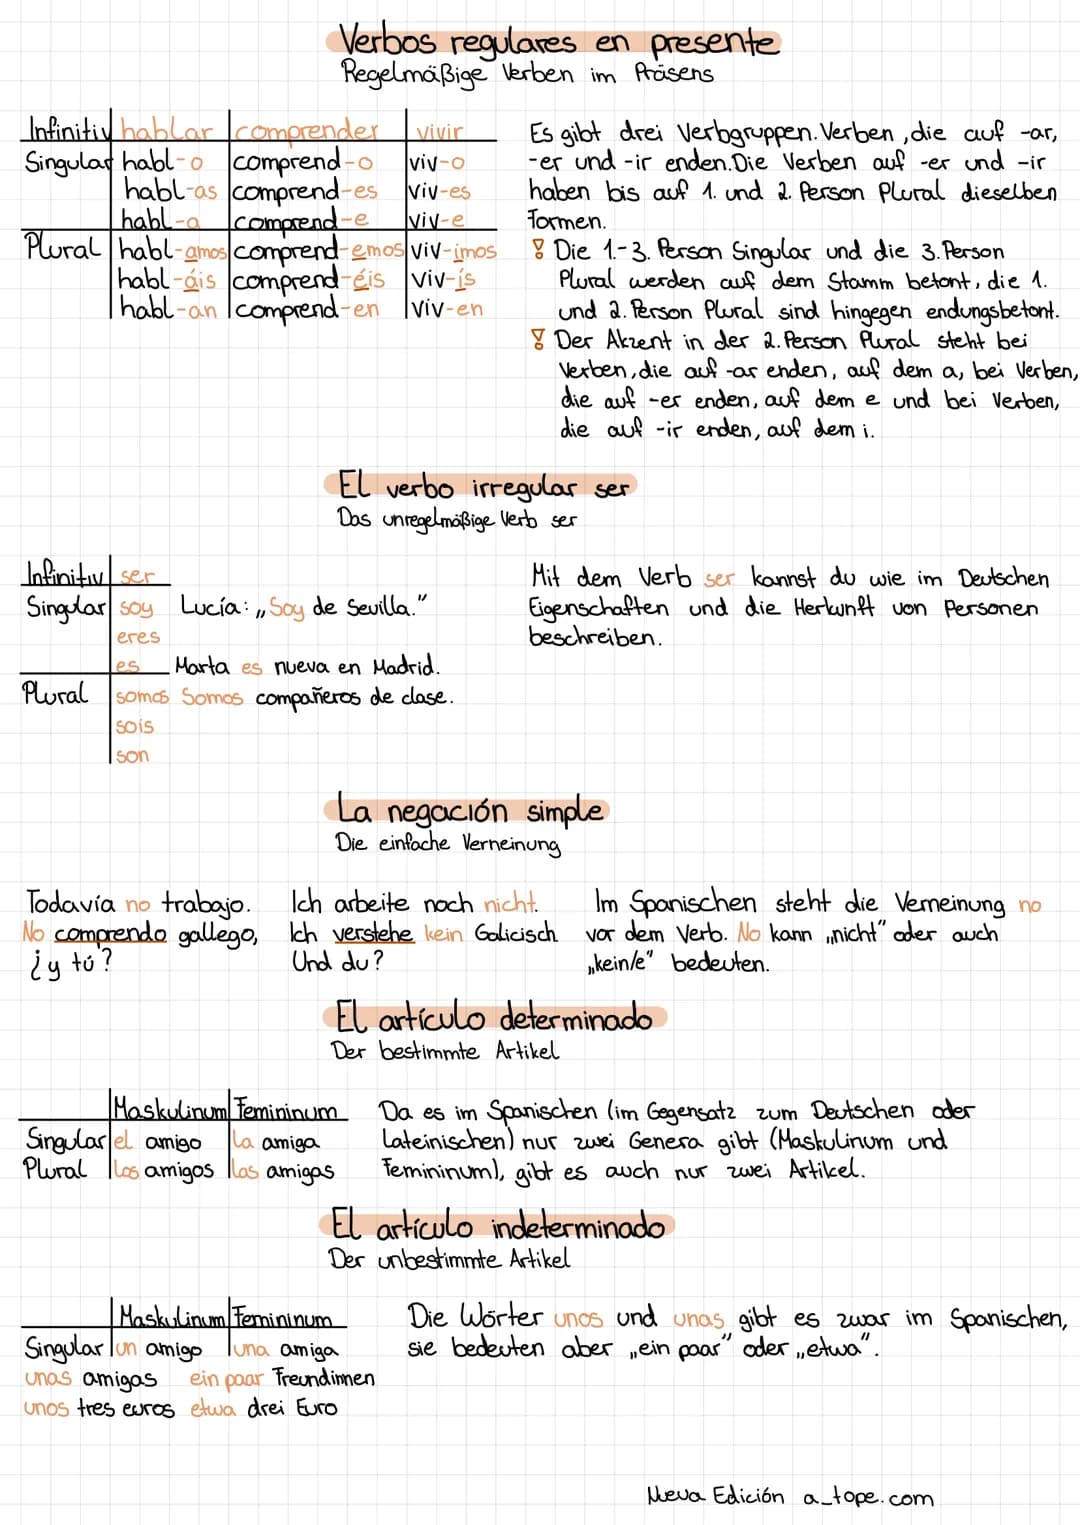 Verbos regulares en presente
Regelmäßige Verben im Präsens
Infinitiv hablar comprender vivir
Singular habl-o comprend-o viv-o
habl-as comprend-es viv-es
habl-a comprend-e viv-e
Plural habl-amos comprend-emos viv-imos
habl-áis comprend-éis viv-ís
habl-an comprend-en viv-en
Es gibt drei Verbgruppen. Verben, die auf -ar,
-er und -ir enden. Die Verben auf -er und -ir
haben bis auf 1. und 2. Person Plural dieselben
Formen.
! Die 1.-3. Person Singular und die 3. Person
Plural werden auf dem Stamm betont, die 1.
und 2. Person Plural sind hingegen endungsbetont.
! Der Akzent in der 2. Person Plural steht bei
Verben, die auf -ar enden, auf dem a, bei Verben,
die auf -er enden, auf dem e und bei Verben,
die auf -ir enden, auf dem i.
El verbo irregular ser
Das unregelmäßige Verb ser
Infinitiv ser
Singular soy Lucía: „Soy de Sevilla."
eres
es Marta es nueva en Madrid.
Plural somos Somos compañeros de clase.
sois
son
Mit dem Verb ser kannst du wie im Deutschen
Eigenschaften und die Herkunft von Personen
beschreiben.
La negación simple
Die einfache Verneinung
Todavía no trabajo.
No comprendo gallego,
¿y tú?
Ich arbeite noch nicht.
Ich verstehe kein Galicisch
Und du?
Im Spanischen steht die Verneinung no
vor dem Verb. No kann „nicht" oder auch
„kein/e" bedeuten.
El artículo determinado
Der bestimmte Artikel
Maskulinum Femininum
Singular el amigo la amiga
Plural los amigos las amigas
Da es im Spanischen (im Gegensatz zum Deutschen oder
Lateinischen) nur zwei Genera gibt (Maskulinum und
Femininum), gibt es auch nur zwei Artikel.
El artículo indeterminado
Der unbestimmte Artikel
Maskulinum Femininum
Singular un amigo una amiga
unas amigas ein paar Freundinnen
unos tres euros etwa drei Euro
Die Wörter unos und unas gibt es zwar im Spanischen,
sie bedeuten aber „ein paar" oder „etwa".
Nueva Edición a_tope.com